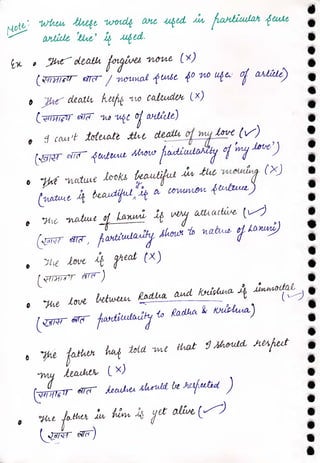 Note: when these words are used in particular sense
article 'the' is used.
Ex • The death forgives none (x)
(सामान्य बात / normal sense so no use of article)
• The death keeps no calender (x)
(सामान्य बात no use of article)
• I can't tolerate the death of my love (✓)
(खास बात sentence show particularity of 'my love')
• The nature looks beautiful in the morning (x)
(nature is beautiful, is a common sentence)
• The nature of Laxmi is very attractive (✓)
(खास बात, particularity shows to nature of Laxmi)
• The love is great (x)
(सामान्य बात)
• The love between Radha and Krishna is immortal (✓)
(खास बात particularity to Radha & Krishna)
• The father has told me that I should respect
my teacher (x)
(सामान्य बात teacher should be respected)
• The father in him is yet alive (✓)
(खास बात)